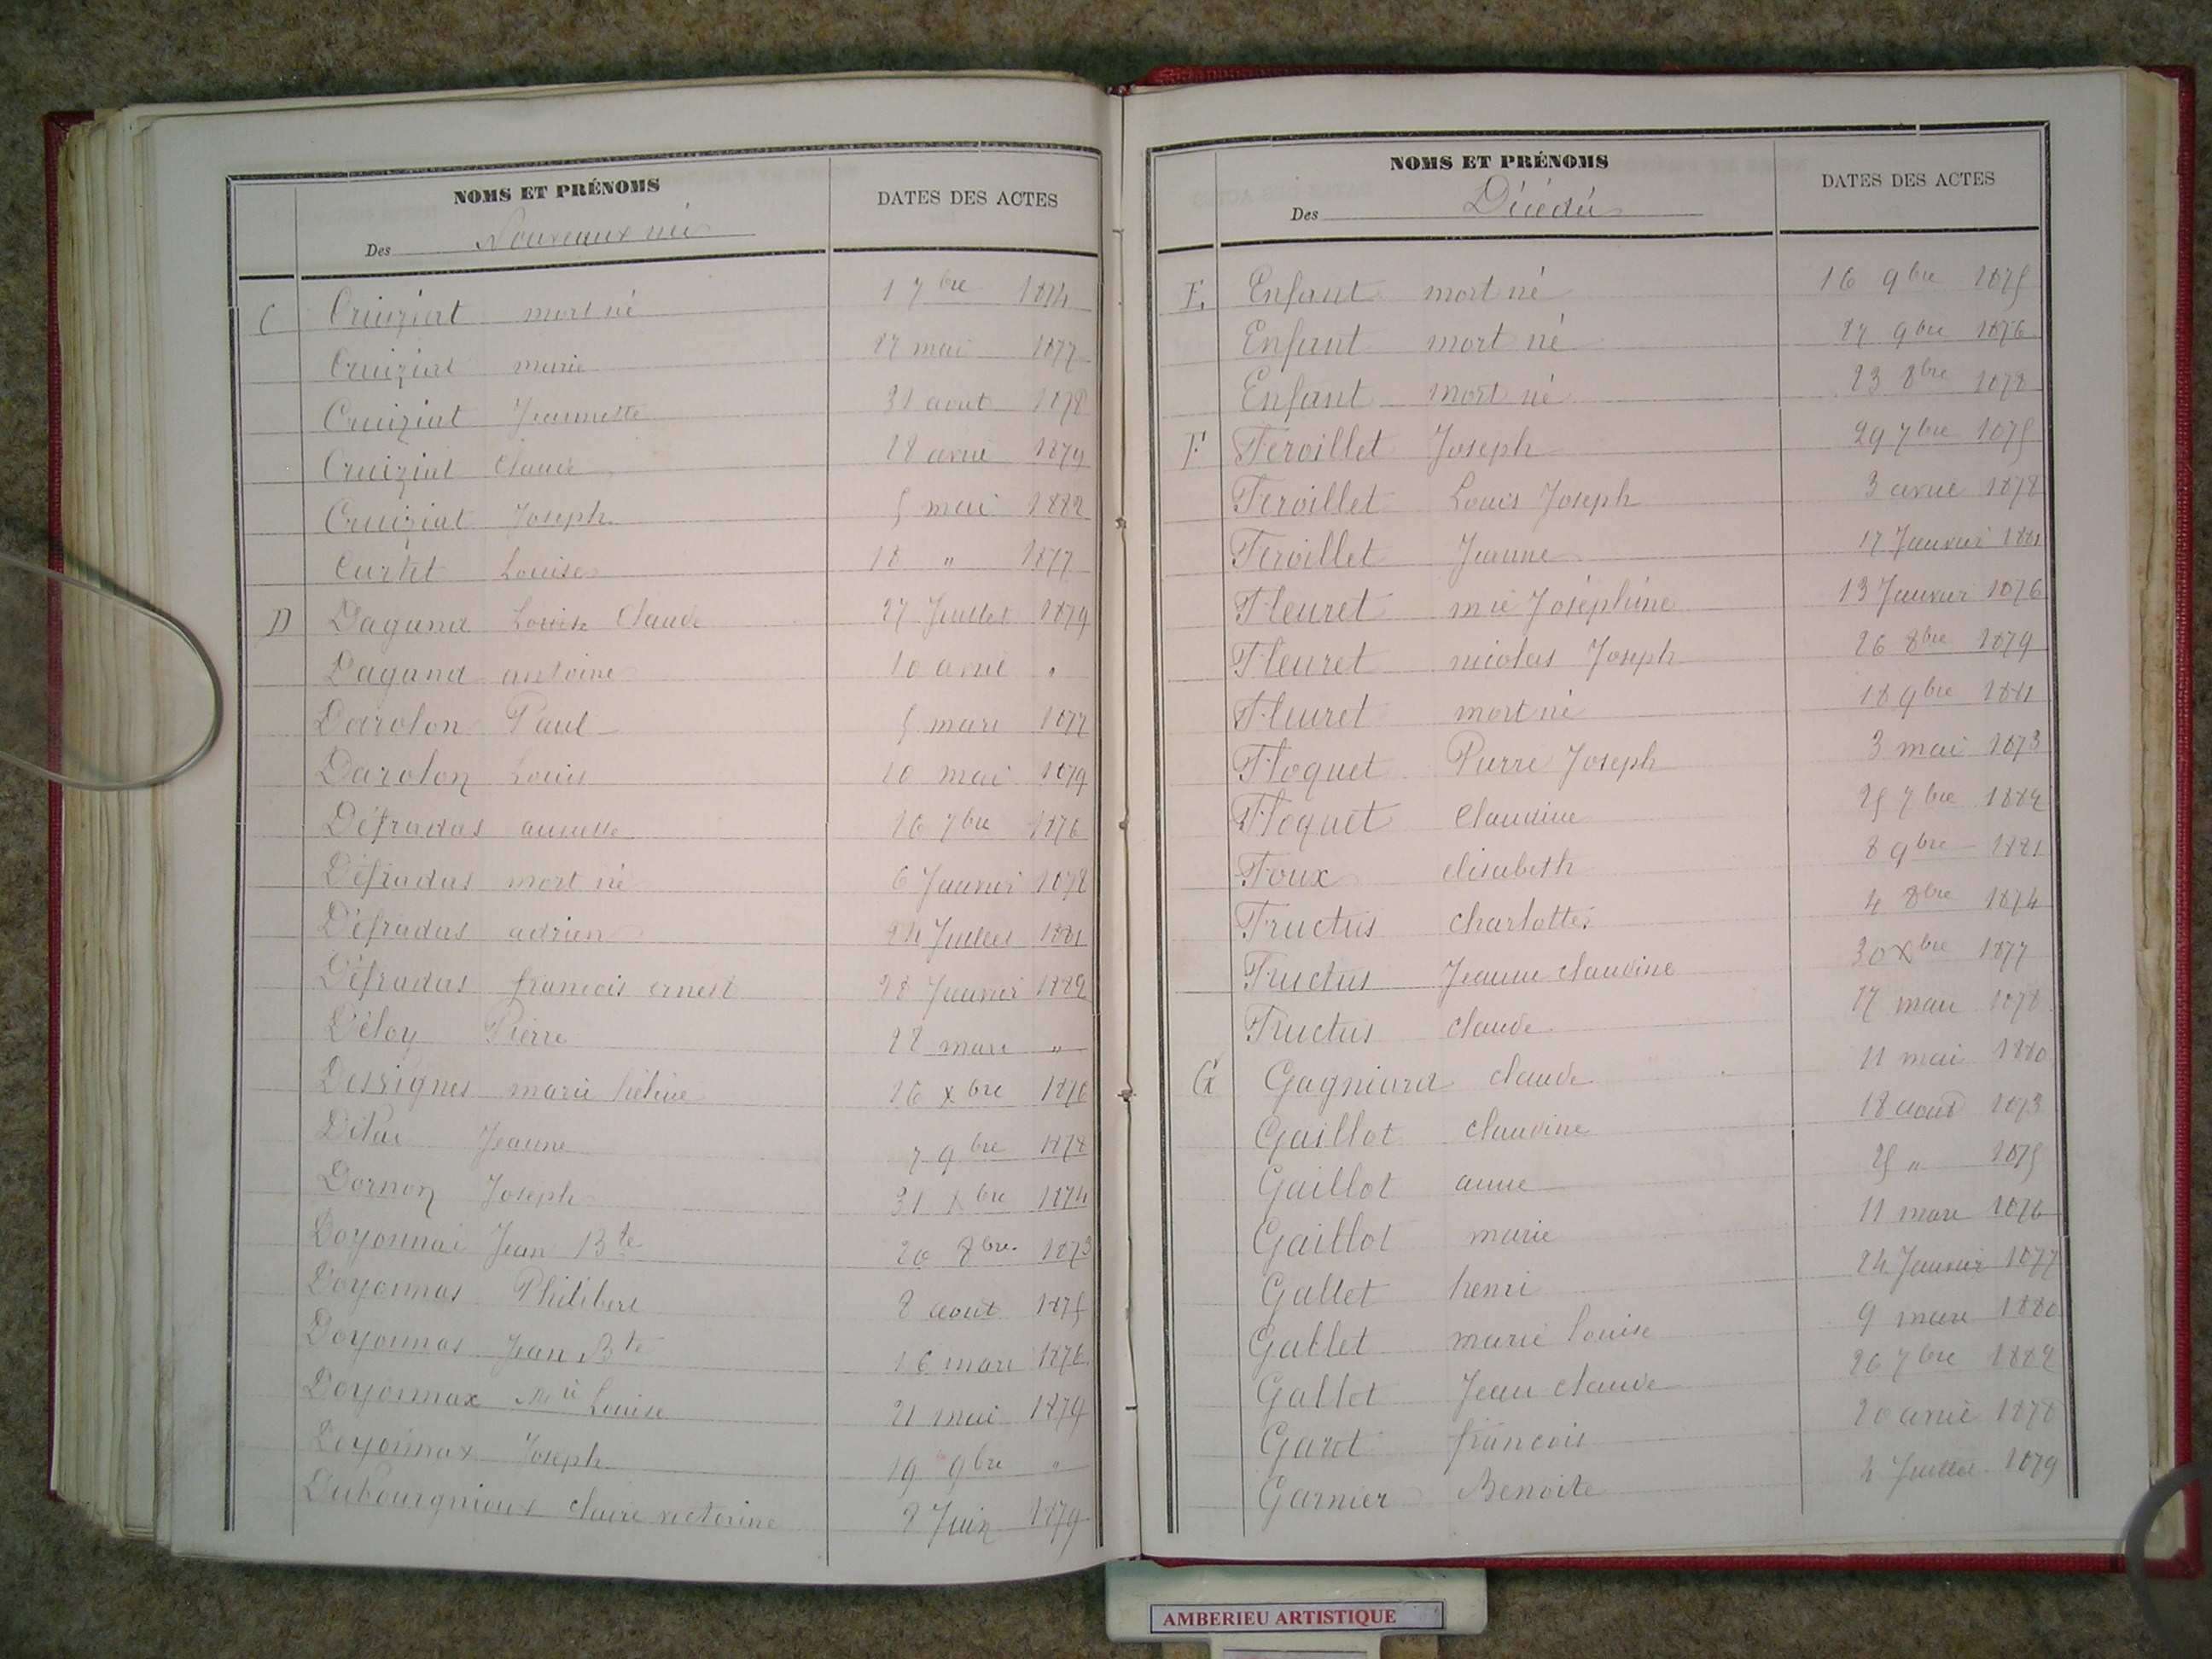 NOMS ET PRÉNOMS
DATES DES ACTES
Des Nouveaux nés
C Cruiziat mort né 1 7bre 1874
Cruiziat marie 27 mai 1877
Cruiziat Jeannette 31 aout 1878
Cruiziat Claude 28 avril 1879
Cruiziat Joseph 5 mai 1882
Curtet Louise 18 " 1877
D Dagand Louise Claude 27 Juillet 1879
Dagand antoine 10 avril "
Darolon Paul 5 mars 1877
Darolon Louis 10 mai 1879
Défradas 16 7bre 1876
Défradas mort né 6 Janvier 1878
Défradas adrien 24 Juillet 1881
Défradas francois ernest 28 Janvier 1882
Déloy Pierre 22 mars "
Desvignes marie hélène 26 xbre 1876
Jeanne 7 9bre 1878
Dornon Joseph 31 xbre 1874
Doyonnai Jean Bte 20 8bre 1873
Doyonnas Philibert 2 aout 1875
Doyonnas Jean Bte 16 mars 1876
Doyonnax Mie Louise 21 mai 1879
Doyonnax Joseph 19 9bre "
Dubourgnioux claire victorine 2 Juin 1879
NOMS ET PRÉNOMS
DATES DES ACTES
Des Décédés
E Enfant mort né 16 9bre 1875
Enfant mort né 27 9bre 1876
Enfant mort né 23 8bre 1878
F Feroillet Joseph 29 7bre 1875
Feroillet Louis Joseph 3 avril 1878
Feroillet Jeanne 17 Janvier 1881
Fleuret mie Joséphine 13 Janvier 1876
Fleuret nicolas Joseph 26 8bre 1879
Fleuret mort né 18 9bre 1881
Floquet Pierre Joseph 3 mai 1873
Floquet Claudine 25 7bre 1882
Foux elisabeth 8 9bre 1881
Fructus charlotte 4 8bre 1874
Fructus Jeanne claudine 30 xbre 1877
Fructus claude 17 mars 1878
G Gagniard claude 11 mai 1880
Gaillot claudine 18 aout 1873
Gaillot anne 25 " 1875
Gaillot marie 11 mars 1876
Gallet henri 24 Janvier 1877
Gallet marie louise 9 mars 1880
Gallet Jean claude 26 7bre 1882
Garet francois 20 avril 1878
Garnier Benoite 4 Juillet 1879
AMBERIEU ARTISTIQUE